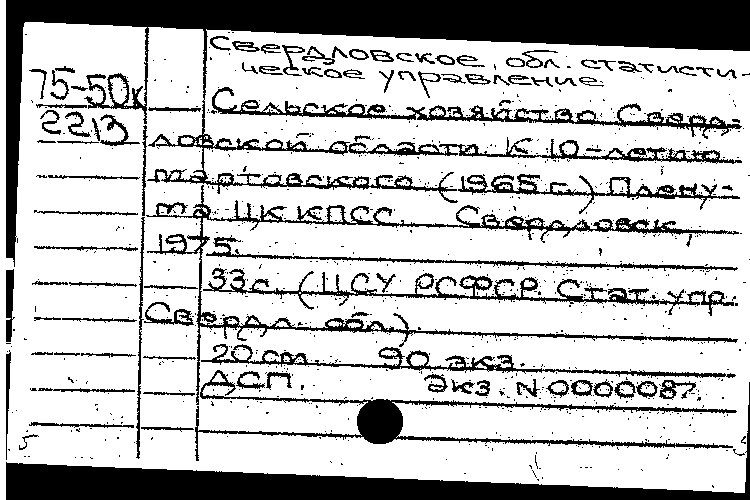 Свердловское обл. статисти-
ческое управление
75-50к
2213
Сельское хозяйство Сверд-
ловской области. К 10-летию
мартовского (1965 г.) Плену-
ма ЦК КПСС. Свердловск,
1975.
33с. (ЦСУ РСФСР. Стат. упр.
Свердл. обл.)
20 см. 90 экз.
ДСП. Экз. N 0000087.